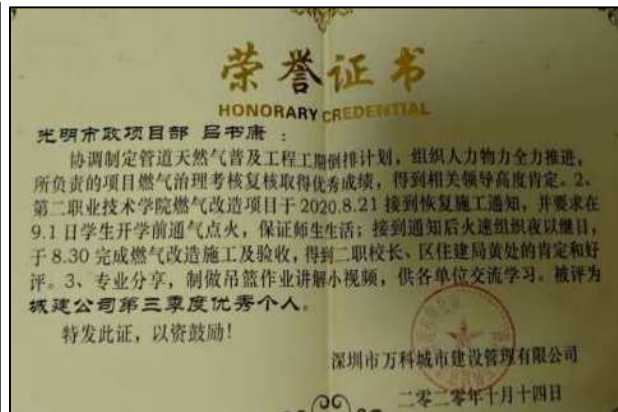 荣誉证书
HONORARY CREDENTIAL
光明市政项目部 吕书康 :
协调制定管道天然气普及工程工期倒排计划，组织人力物力全力推进，
所负责的项目燃气治理考核复核取得优秀成绩，得到相关领导高度肯定。2、
第二职业技术学院燃气改造项目于2020.8.21 接到恢复施工通知，并要求在
9.1 日学生开学前通气点火，保证师生生活；接到通知后火速组织夜以继日，
于 8.30 完成燃气改造施工及验收，得到二职校长、区住建局黄处的肯定和好
评。3、专业分享，制做吊篮作业讲解小视频，供各单位交流学习。被评为
城建公司第三季度优秀个人。
特发此证，以资鼓励！
深圳市万科城市建设管理有限公司
二零二零年十月十四日